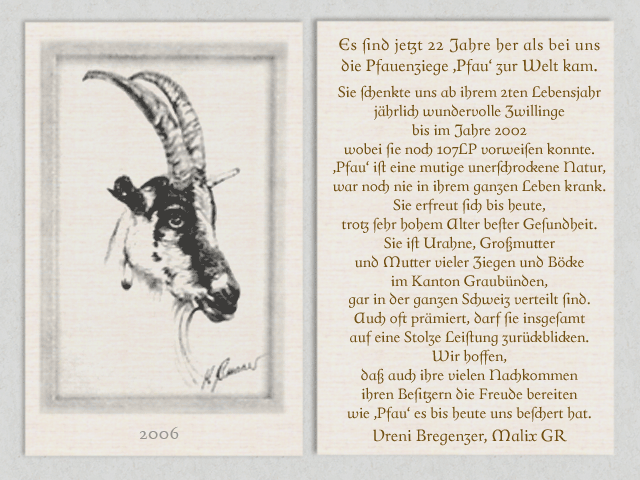 2006
Es ſind jetzt 22 Jahre her als bei uns
die Pfauenziege ‚Pfau‘ zur Welt kam.
Sie ſchenkte uns ab ihrem 2ten Lebensjahr
jährlich wundervolle Zwillinge
bis im Jahre 2002
wobei ſie noch 107LP vorweiſen konnte.
‚Pfau‘ iſt eine mutige unerſchrockene Natur,
war noch nie in ihrem ganzen Leben krank.
Sie erfreut ſich bis heute,
trotz ſehr hohem Alter beſter Geſundheit.
Sie iſt Urahne, Großmutter
und Mutter vieler Ziegen und Böcke
im Kanton Graubünden,
gar in der ganzen Schweiz verteilt ſind.
Auch oft prämiert, darf ſie insgeſamt
auf eine Stolze Leiſtung zurückblicken.
Wir hoffen,
daß auch ihre vielen Nachkommen
ihren Beſitzern die Freude bereiten
wie ‚Pfau‘ es bis heute uns beſchert hat.
Vreni Bregenzer, Malix GR